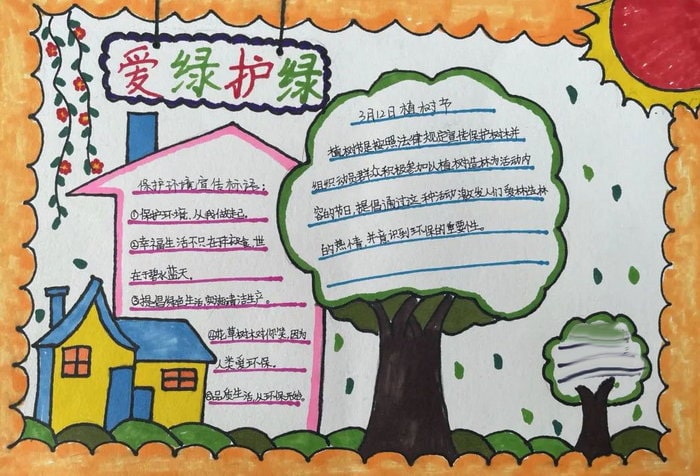 爱绿护绿
3月12日植树节
植树节是按照法律规定宣传保护树木并
组织动员群众积极参加以植树造林为活动内
容的节日。提倡通过这种活动,激发人们爱林造林
的热情,并意识到环保的重要性。
保护环境宣传标语:
①保护环境,从我做起。
②幸福生活不只在于衣食,世
在于碧水蓝天。
③提倡绿色生活,实施清洁生产。
④花草树木对你笑,因为
人类爱环保。
⑤品质生活,从环保开始。